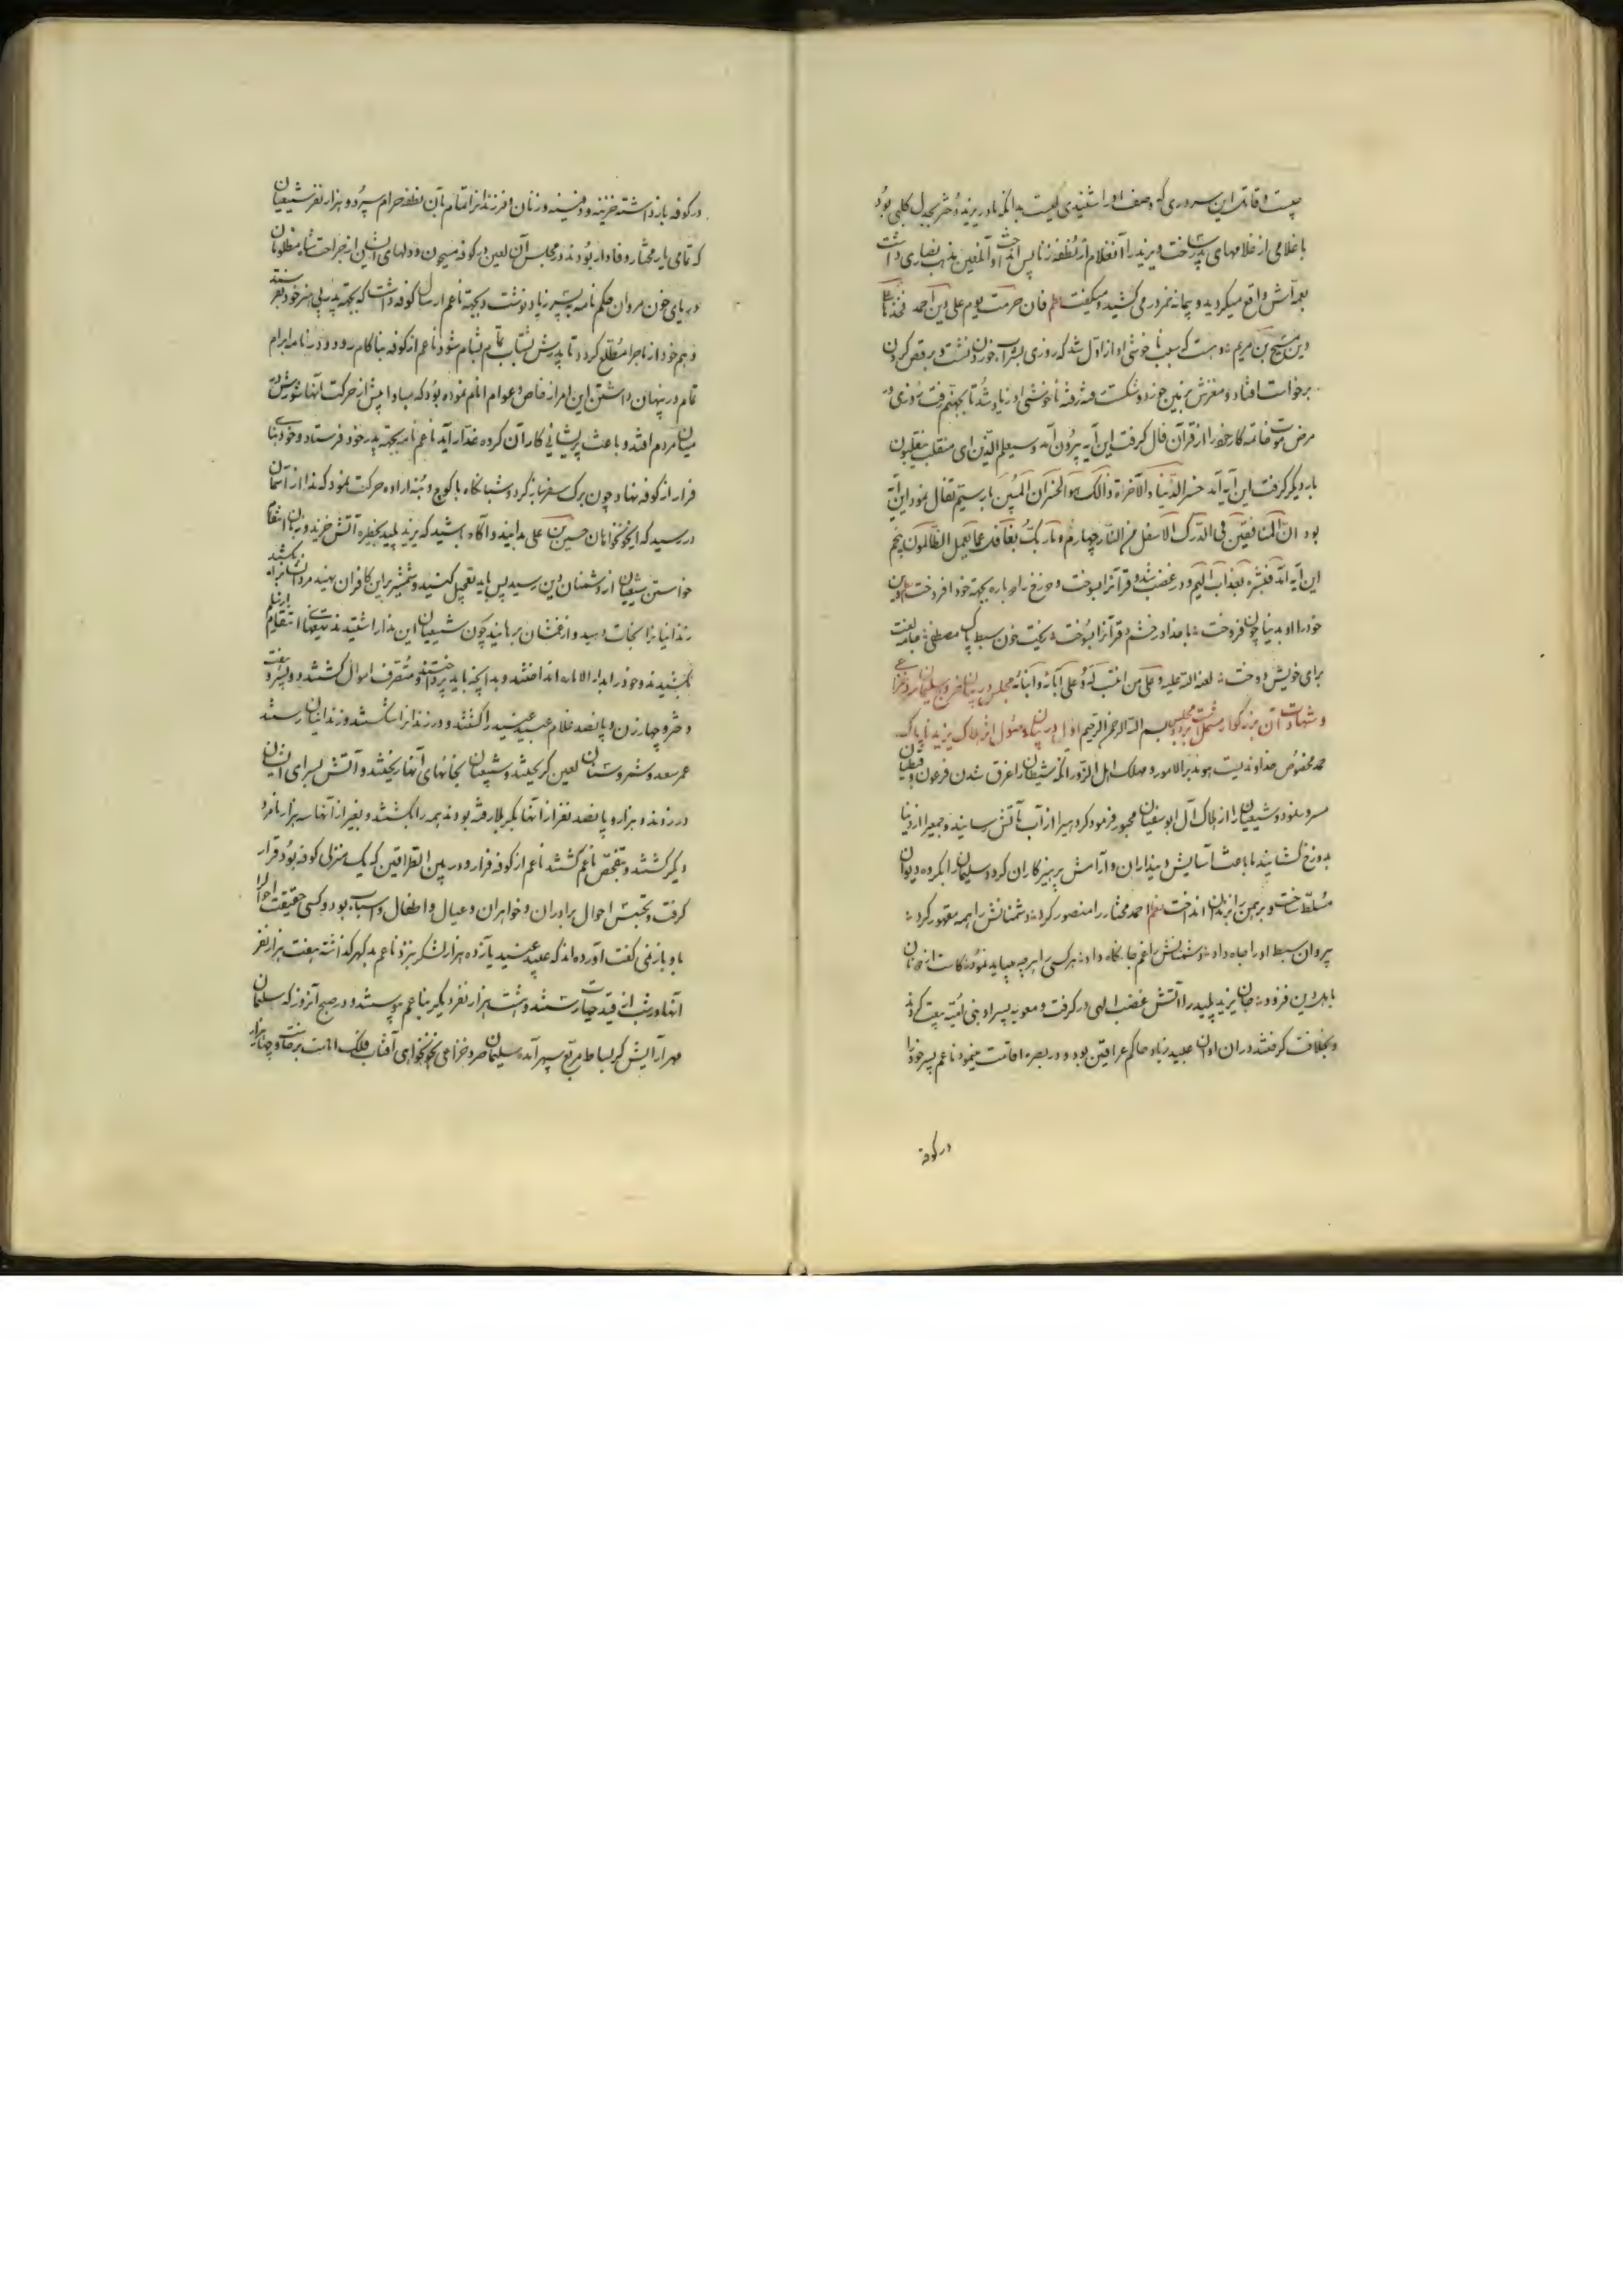 چیست و قاتل این سروری که وصف او را شنیدی کیست بدانکه مادر یزید دختر بجدل کلبی بود
با غلامی از غلامهای پدر ساخت و یزید را آن غلام از نطفه زنا پس انداخت و آن لعین مذهب نصاری داشت
بعمه‌اش واقع میگردید و پیمانه خمر در می‌کشید و میگفت نظم فان حرمت یوم علی دین احمد فخذها علی
دین مسیح بن مریم سبب ناخوشی او از اول شد که روزی بشراب خوردن نشست و برقص کردن
برخواست افتاد و مغزش بزمین خورد و شکست رفته رفته ناخوشی او زیاد شد تا بجهنم رفت روزی در
مرض موت خاتمه کار خود را از قرآن فال گرفت این آیه بیرون آمد وسیعلم الذین ای منقلب ینقلبون
بار دیگر گرفت این آیه آمد خسر الدنیا والآخرة ذالک هو الخسران المبین بار سیم تفال نمود این آیه
بود ان المنافقین فی الدرک الاسفل من النار چهارم وما ربک بغافل عما یعمل الظالمون پنجم
این آیه آمد فبشره بعذاب الیم و در غضب شد و قرآنرا بسوخت و دوزخ را دوباره بجهة خود افروخت
خود را او بدنیا چون فروخت با خدا در خشم و قرآنرا بسوخت ریخت خون سبط پاک مصطفی جامه لعنت
برای خویش دوخت لعنة الله علیه وعلی من انتسب له وعلی آبائه وابنائه مجلس در بیان خروج سلیمان صرد خزاعی
و شهادت آن بزرگوار مشتمل بر دو مجلس بسم الله الرحمن الرحیم اول در بیان هلاک یزید ناپاک
حمد مخصوص خداوندیست هو مدبر الامور و مهلک اهل الزور آنکه شیطان را غرق شدن فرعون و قبطیان
مسرور نمود و شیعیان را از هلاک آل ابوسفیان مجبور فرمود گروهی را از آب بآتش رسانید و جمعی را از دنیا
بدوزخ کشانید تا باعث آسایش دینداران و آرامش پرهیزکاران کرد و سلیمان را بگروه دیوان
مسلط ساخت و بریمن را بزندان انداخت نظم احمد مختار را منصور کرد دشمنانش را همه مقهور کرد
پیروان سبط او را جاه داد دشمنانش را غم جانکاه داد هر کسی را هر چه میباید نمود
یزید پلید را آتش غضب الهی در گرفت و معویه پسر او بنی امیه بیعت کردند
و بخلافت گرفتند در آن اوان عبید زیاد حاکم عراقین بود و در بصره اقامت مینمود ناعم پسر خود را
در کوفه
در کوفه بازداشته خزینه و دفینه و زنان و فرزندانرا تمام بآن نطفه حرام سپرد و هزار نفر شیعیان
که تمامی یار مختار و وفادار بودند در مجلس آن لعین در کوفه مسجون و دلهای ایشان از جراحت شاه مظلومان
دریای خون مروان حکم نامه به پسر زیاد نوشت و بجهة ناعم ارسال کوفه داشت که بجهة پدر بی‌هنر خود بفرستد
و هم خود از ماجرا مطلع گردد تا پدرش بشتاب تمام بشام شود ناعم از کوفه بناکام رود و در نامه ابرام
تمام در پنهان داشتن این امر از خاص و عوام انام نموده بود که مبادا پیش از حرکت آنها شورش در
میان مردم افتد و باعث پریشانی کار آن گروه غدار آید ناعم نامه بجهة پدر خود فرستاد و خود بنای
فرار از کوفه نهاد و چون برگ سفر ساز کرد و شبانگاه با کوچ و بنه اراده حرکت نمود که ندا از آسمان
در رسید که ای خونخواهان حسین بن علی بدانید و آگاه باشید که یزید پلید بخطیره آتش خزید و زمان انتقام
خواستن شیعیان از دشمنان دین رسید پس باید تعجیل کنید و شمشیر بر این کافران نهید مردان را بکشید
زندانیانرا نجات دهید و از غمشان برهانید چون شیعیان این ندا را شنیدند تیغهای انتقام از نیام
بکشیدند و خود را بدار الاماره انداختند و بدانچه باید پرداختند و متصرف اموال گشتند دو پسر و هفت
دختر و چهار زن و پانصد غلام عبید عنید را کشتند و در زندانرا شکستند و زندانیان رستند
عمر سعد و شمر و سنان لعین گریختند و شیعیان بخانهای آنها ریختند و آتش بسرای ایشان
در زدند و هزار و پانصد نفر از آنها بکربلا رفته بودند همه را بکشتند و بغیر از آنها سه هزار نامرد
دیگر کشتند و بتفحص ناعم گشتند ناعم از کوفه فرار و در بین الطراقین که یک منزلی کوفه بود قرار
گرفت و بتجسس احوال برادران و خواهران و عیال و اطفال و اسباب بود و کسی حقیقت احوال را
باو باز نمی گفت آورده‌اند که عبید عنید یازده هزار لشکر بنزد ناعم بد گهر گذاشته هفت هزار نفر
آنها در شب از قید حیات رستند و هشت هزار نفر دیگر بناعم پیوستند و در صبح آنروز که سلیمان
مهر آرایش گر بساط مربع سپهر آمد سلیمان صرد خزاعی بخونخواهی آفتاب فلک امامت برخاست و چهار هزار